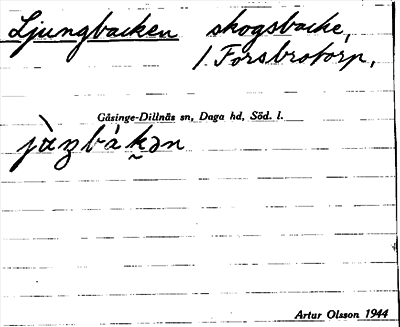 Ljungbacken skogsbacke,
/. Forsbrotorp,
Gåsinge-Dillnäs sn, Daga hd, Söd. l.
Artur Olsson 1944